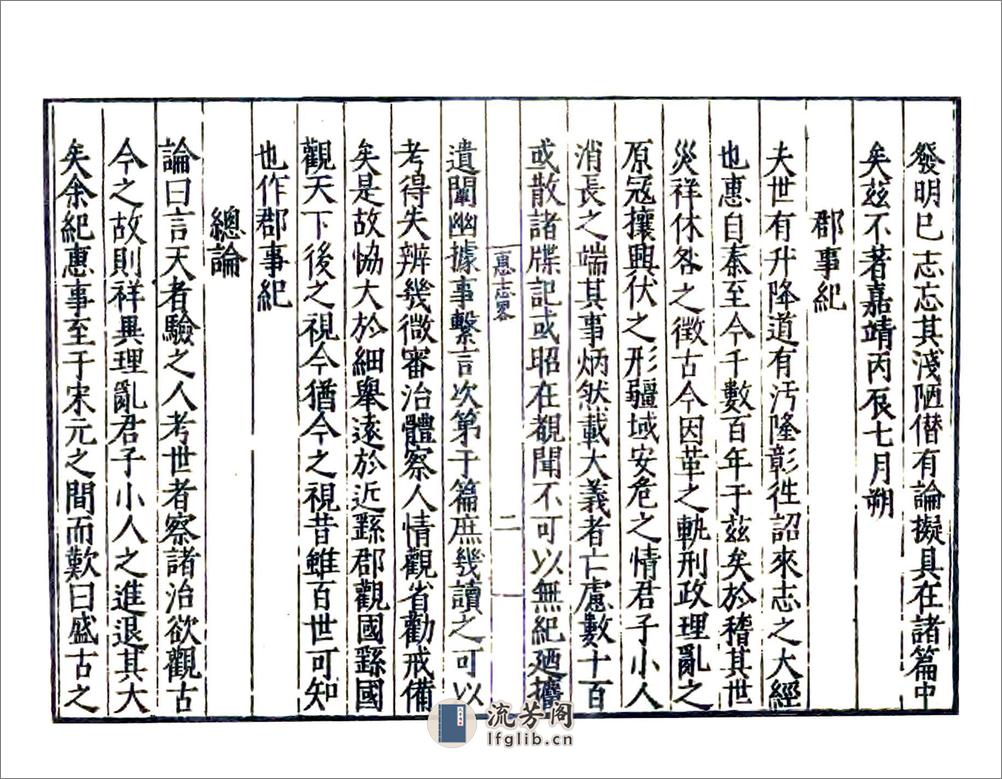 發明已志忘其淺陋僣有論擬具在諸篇中
矣茲不著嘉靖丙辰七月朔
郡事紀
夫世有升降道有污隆彰徃詔來志之大經
也惠自秦至今千數百年于茲矣於稽其世
災祥休咎之徵古今因革之軌刑政理亂之
原冦攘興伏之形疆域安危之情君子小人
消長之端其事炳然載大義者亡慮數十百
或散諸牒記或昭在覩聞不可以無紀廼攟
惠志畧
二
遺闡幽據事繫言次第于篇庶幾讀之可以
考得失辨幾微審治體察人情觀省勸戒備
矣是故恊大於細舉遠於近繇郡觀國繇國
觀天下後之視今猶今之視昔雖百世可知
也作郡事紀
總論
論曰言天者驗之人考世者察諸治欲觀古
今之故則祥異理亂君子小人之進退其大
矣余紀惠事至于宋元之間而歎曰盛古之
流芳阁
lfglib.cn